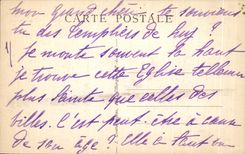 mon grand chéri te souviens
CARTE POSTALE
tu des Templiers de
je monte souvent là haut
je trouve cette Eglise tellement
plus Sainte que celles des
villes. C'est peut-être à cause
de son âge? Elle a